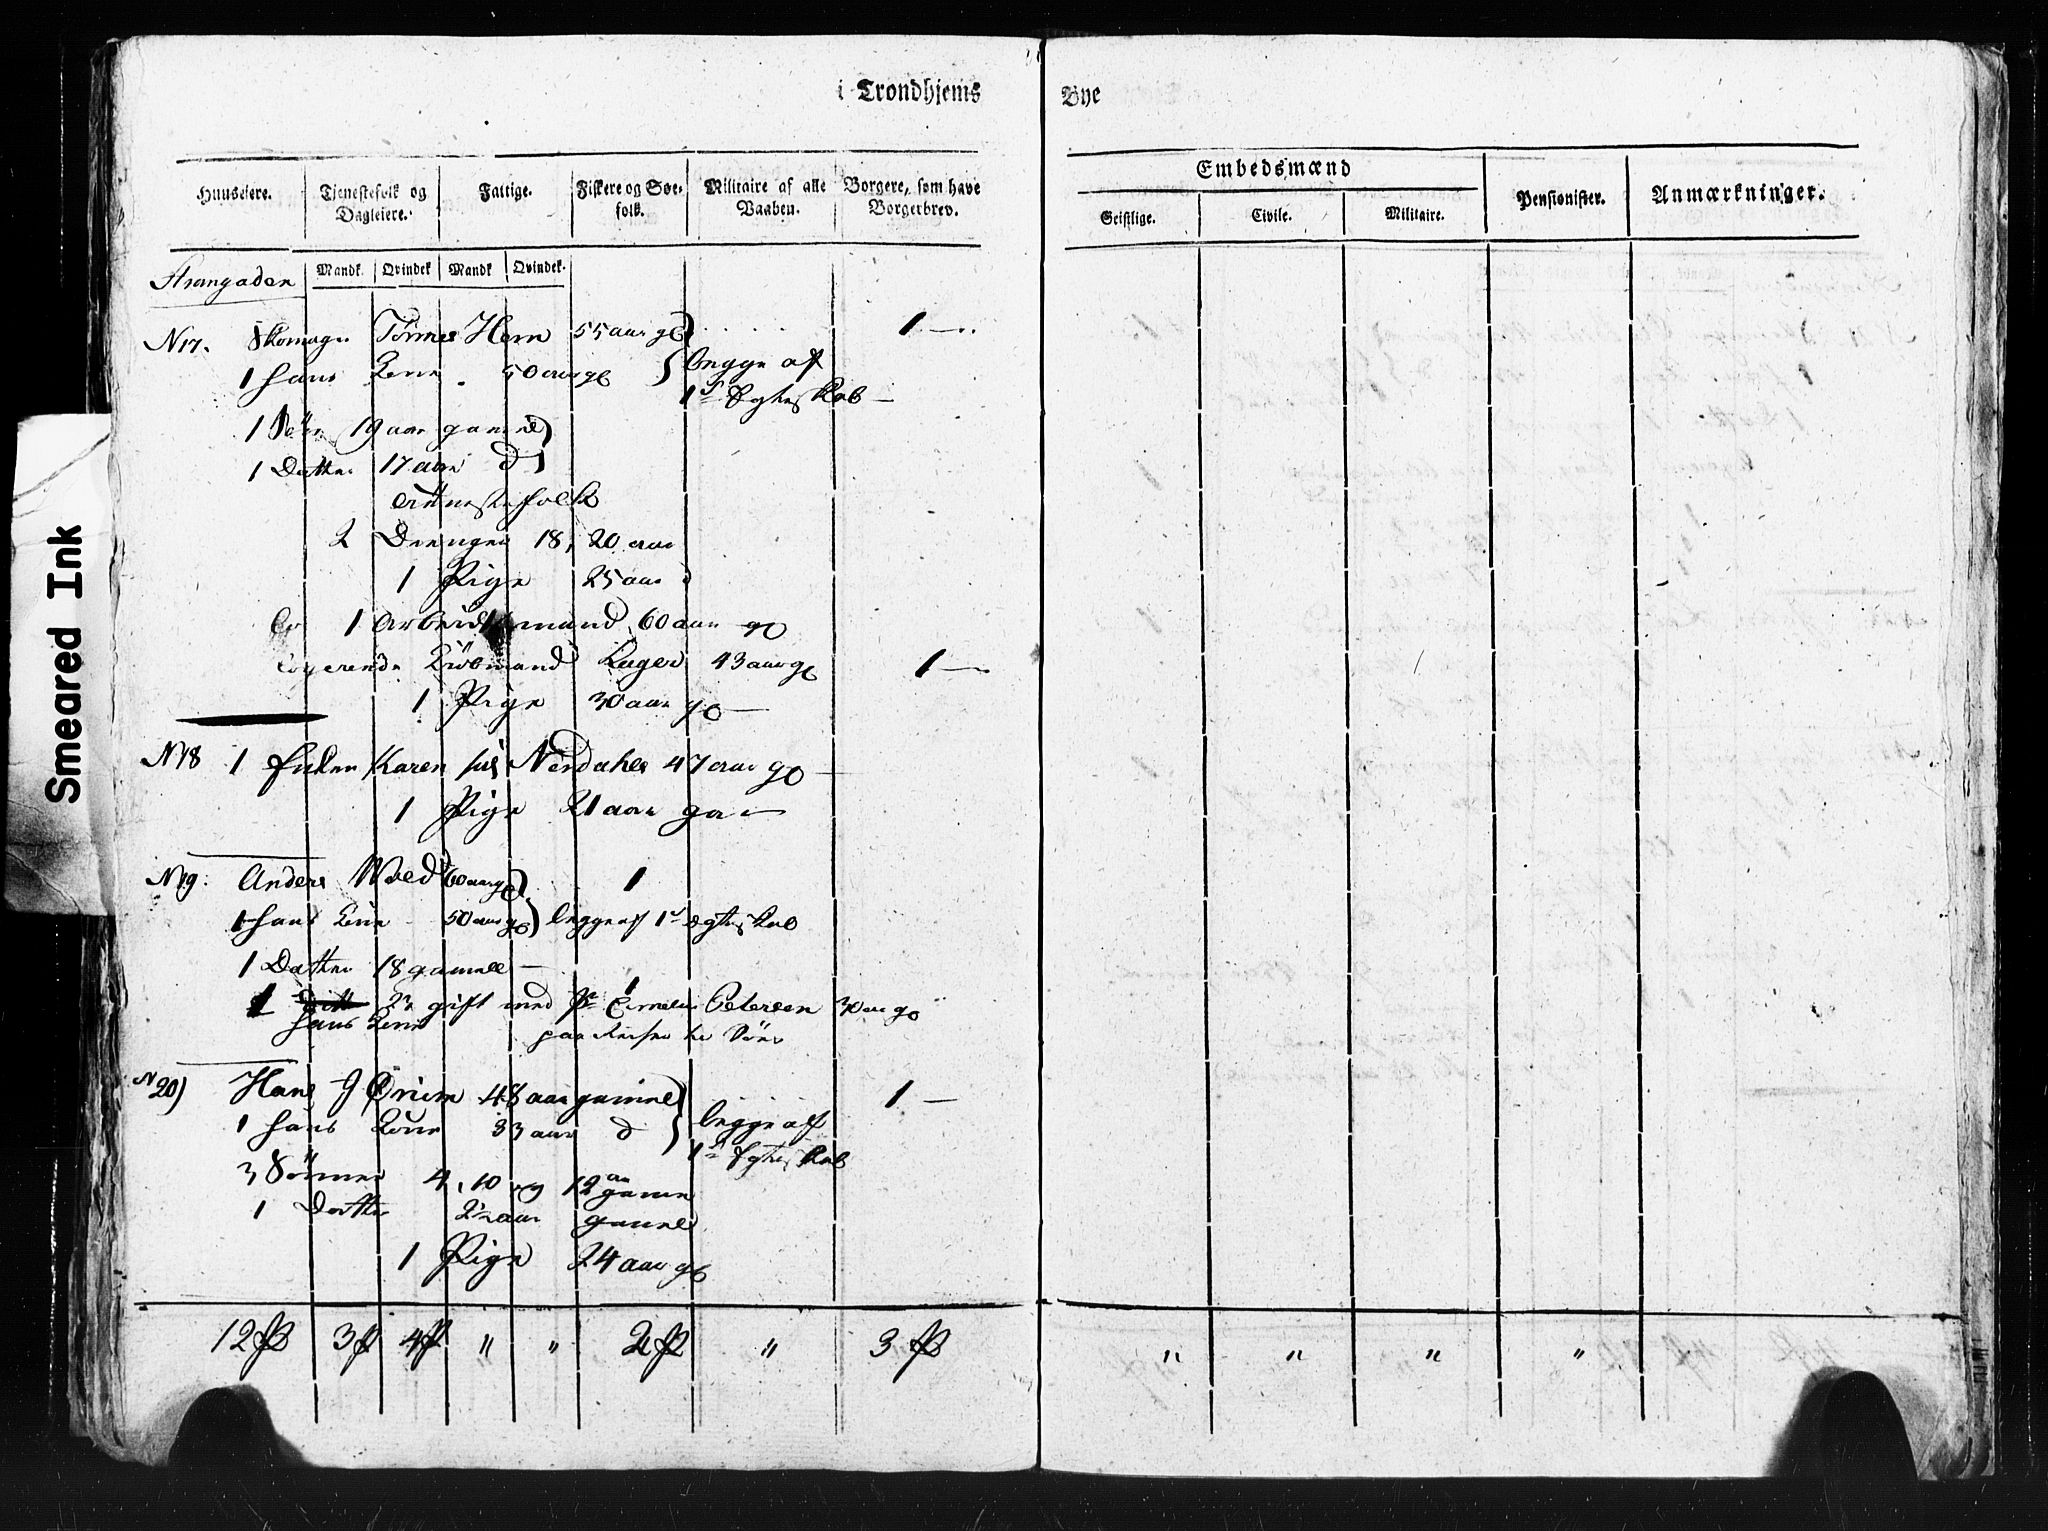 i Trondhjems Bye
Huuseiere. Tjenestefolk og Dagleiere. Fattige. Fiskere og Søefolk. Militaire af alle Vaaben. Borgere, som have Borgerbrev. Embedsmænd Pensionister. Anmærkninger.
Geistlige. Civile. Militaire.
Mandk. Qvindek Mandk Qvindek.
Strangaden
N 17. Skomager Hern 55 aar gl 1
1 hans Kone 50 aar gl begge af
1st Egteskab
1 Søn 19 aar gammel
1 Datter 17 aar d
Tienestefolk
2 Drenger 18, 20 aar
1 Pige 25 aar d
1 Arbeidsmand 60 aar gl
Logerende Kiöbmand 43 aar gl 1
1 Pige 30 aar gl
N 18 1 Enken Karen sal Nerdahls 47 aar gl
1 Pige 21 aar ga
N 19. Anders 60 aar gl 1
1 hans Kone 50 aar gl begge af 1st Egteskab
1 Datter 18 gamle
1 gift med Petersen 30 aar gl 1
hans Kone paa Reisen
N 20) Hans J 48 aar gammel 1
1 hans Kone 33 aar d begge af
1st Egteskab
3 Sönner 4, 10 og 12 aar gamle
1 Datter aar gammel
1 Pige 24 aar gl
12 3 4 " " 2 " 3 " " " "
Smeared Ink